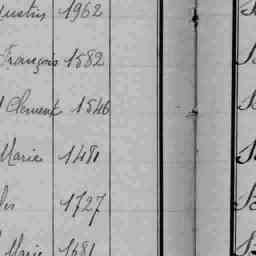 ustin 1962
François 1582
Clement 1546
Marie 1481
les 1727
Marie 1681